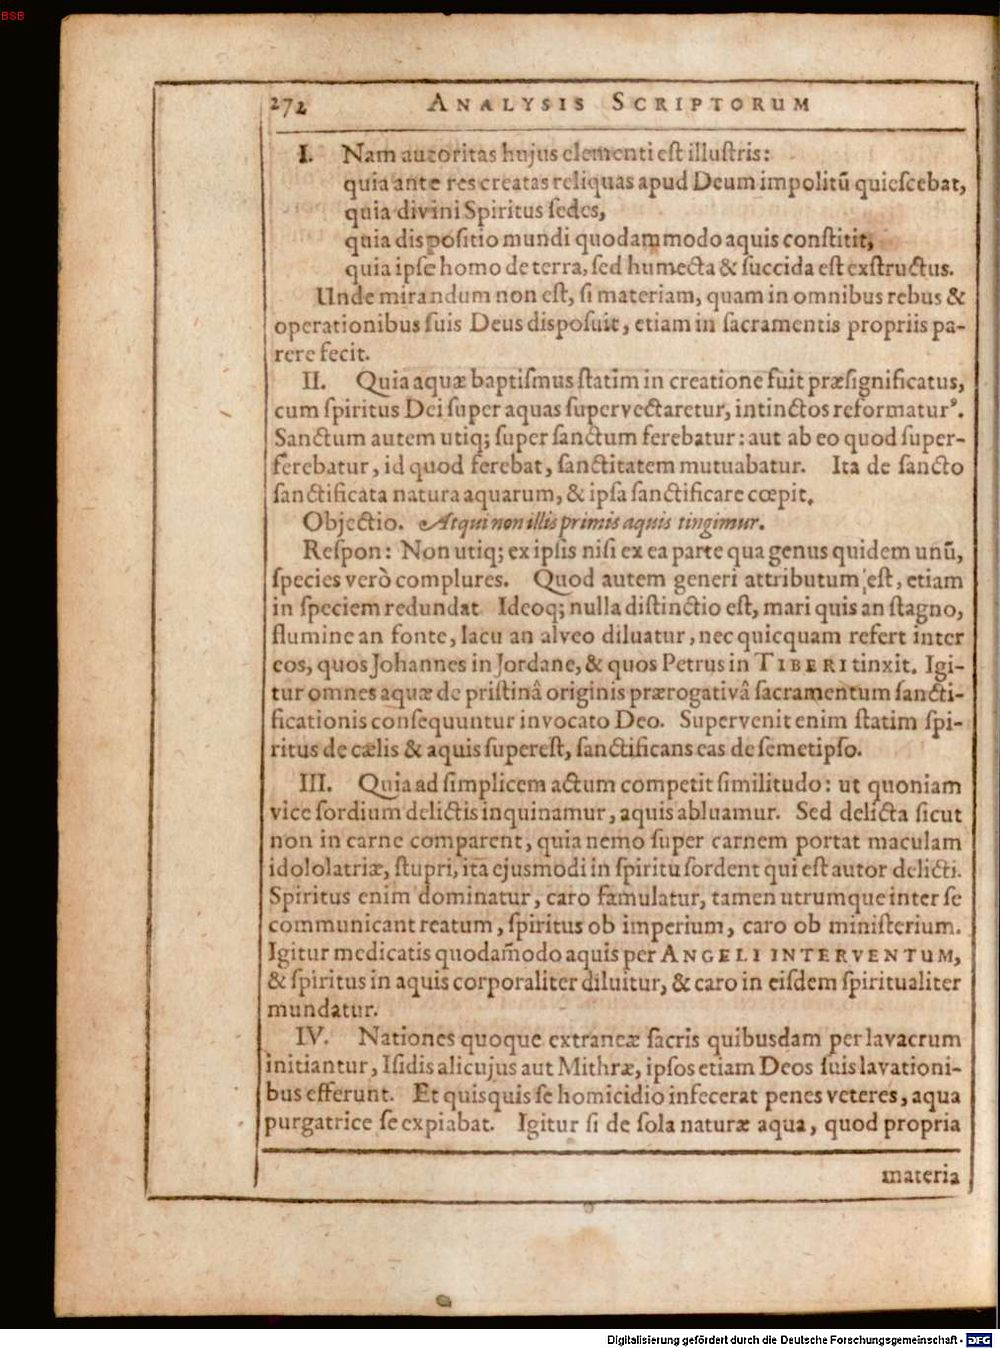 BSB
272 ANALYSIS SCRIPTORUM
I. Nam autoritas hujus elementi est illustris:
quia ante res creatas reliquas apud Deum impolitũ quiescebat,
quia divini Spiritus sedes,
quia dispositio mundi quodammodo aquis constitit,
quia ipse homo de terra, sed humecta & succida est exstructus.
Unde mirandum non est, si materiam, quam in omnibus rebus &
operationibus suis Deus disposuit, etiam in sacramentis propriis pa-
rere fecit.
II. Quia aquæ baptismus statim in creatione fuit præsignificatus,
cum spiritus Dei super aquas supervectaretur, intinctos reformaturꝰ.
Sanctum autem utiq; super sanctum ferebatur: aut ab eo quod super-
ferebatur, id quod ferebat, sanctitatem mutuabatur. Ita de sancto
sanctificata natura aquarum, & ipsa sanctificare cœpit.
Objectio. Atqui non illis primis aquis tingimur.
Respon: Non utiq; ex ipsis nisi ex ea parte qua genus quidem unũ,
species verò complures. Quod autem generi attributum est, etiam
in speciem redundat Ideoq; nulla distinctio est, mari quis an stagno,
flumine an fonte, lacu an alveo diluatur, nec quicquam refert inter
eos, quos Johannes in Jordane, & quos Petrus in TIBERI tinxit. Igi-
tur omnes aquæ de pristinâ originis prærogativâ sacramentum sancti-
ficationis consequuntur invocato Deo. Supervenit enim statim spi-
ritus de cælis & aquis superest, sanctificans eas de semetipso.
III. Quia ad simplicem actum competit similitudo: ut quoniam
vice sordium delictis inquinamur, aquis abluamur. Sed delicta sicut
non in carne comparent, quia nemo super carnem portat maculam
idololatriæ, stupri, ita ejusmodi in spiritu sordent qui est autor delicti.
Spiritus enim dominatur, caro famulatur, tamen utrumque inter se
communicant reatum, spiritus ob imperium, caro ob ministerium.
Igitur medicatis quodam̃odo aquis per ANGELI INTERVENTUM,
& spiritus in aquis corporaliter diluitur, & caro in eisdem spiritualiter
mundatur.
IV. Nationes quoque extraneæ sacris quibusdam per lavacrum
initiantur, Isidis alicujus aut Mithræ, ipsos etiam Deos suis lavationi-
bus efferunt. Et quisquis se homicidio infecerat penes veteres, aqua
purgatrice se expiabat. Igitur si de sola naturæ aqua, quod propria
materia
Digitalisierung gefördert durch die Deutsche Forschungsgemeinschaft - DFG